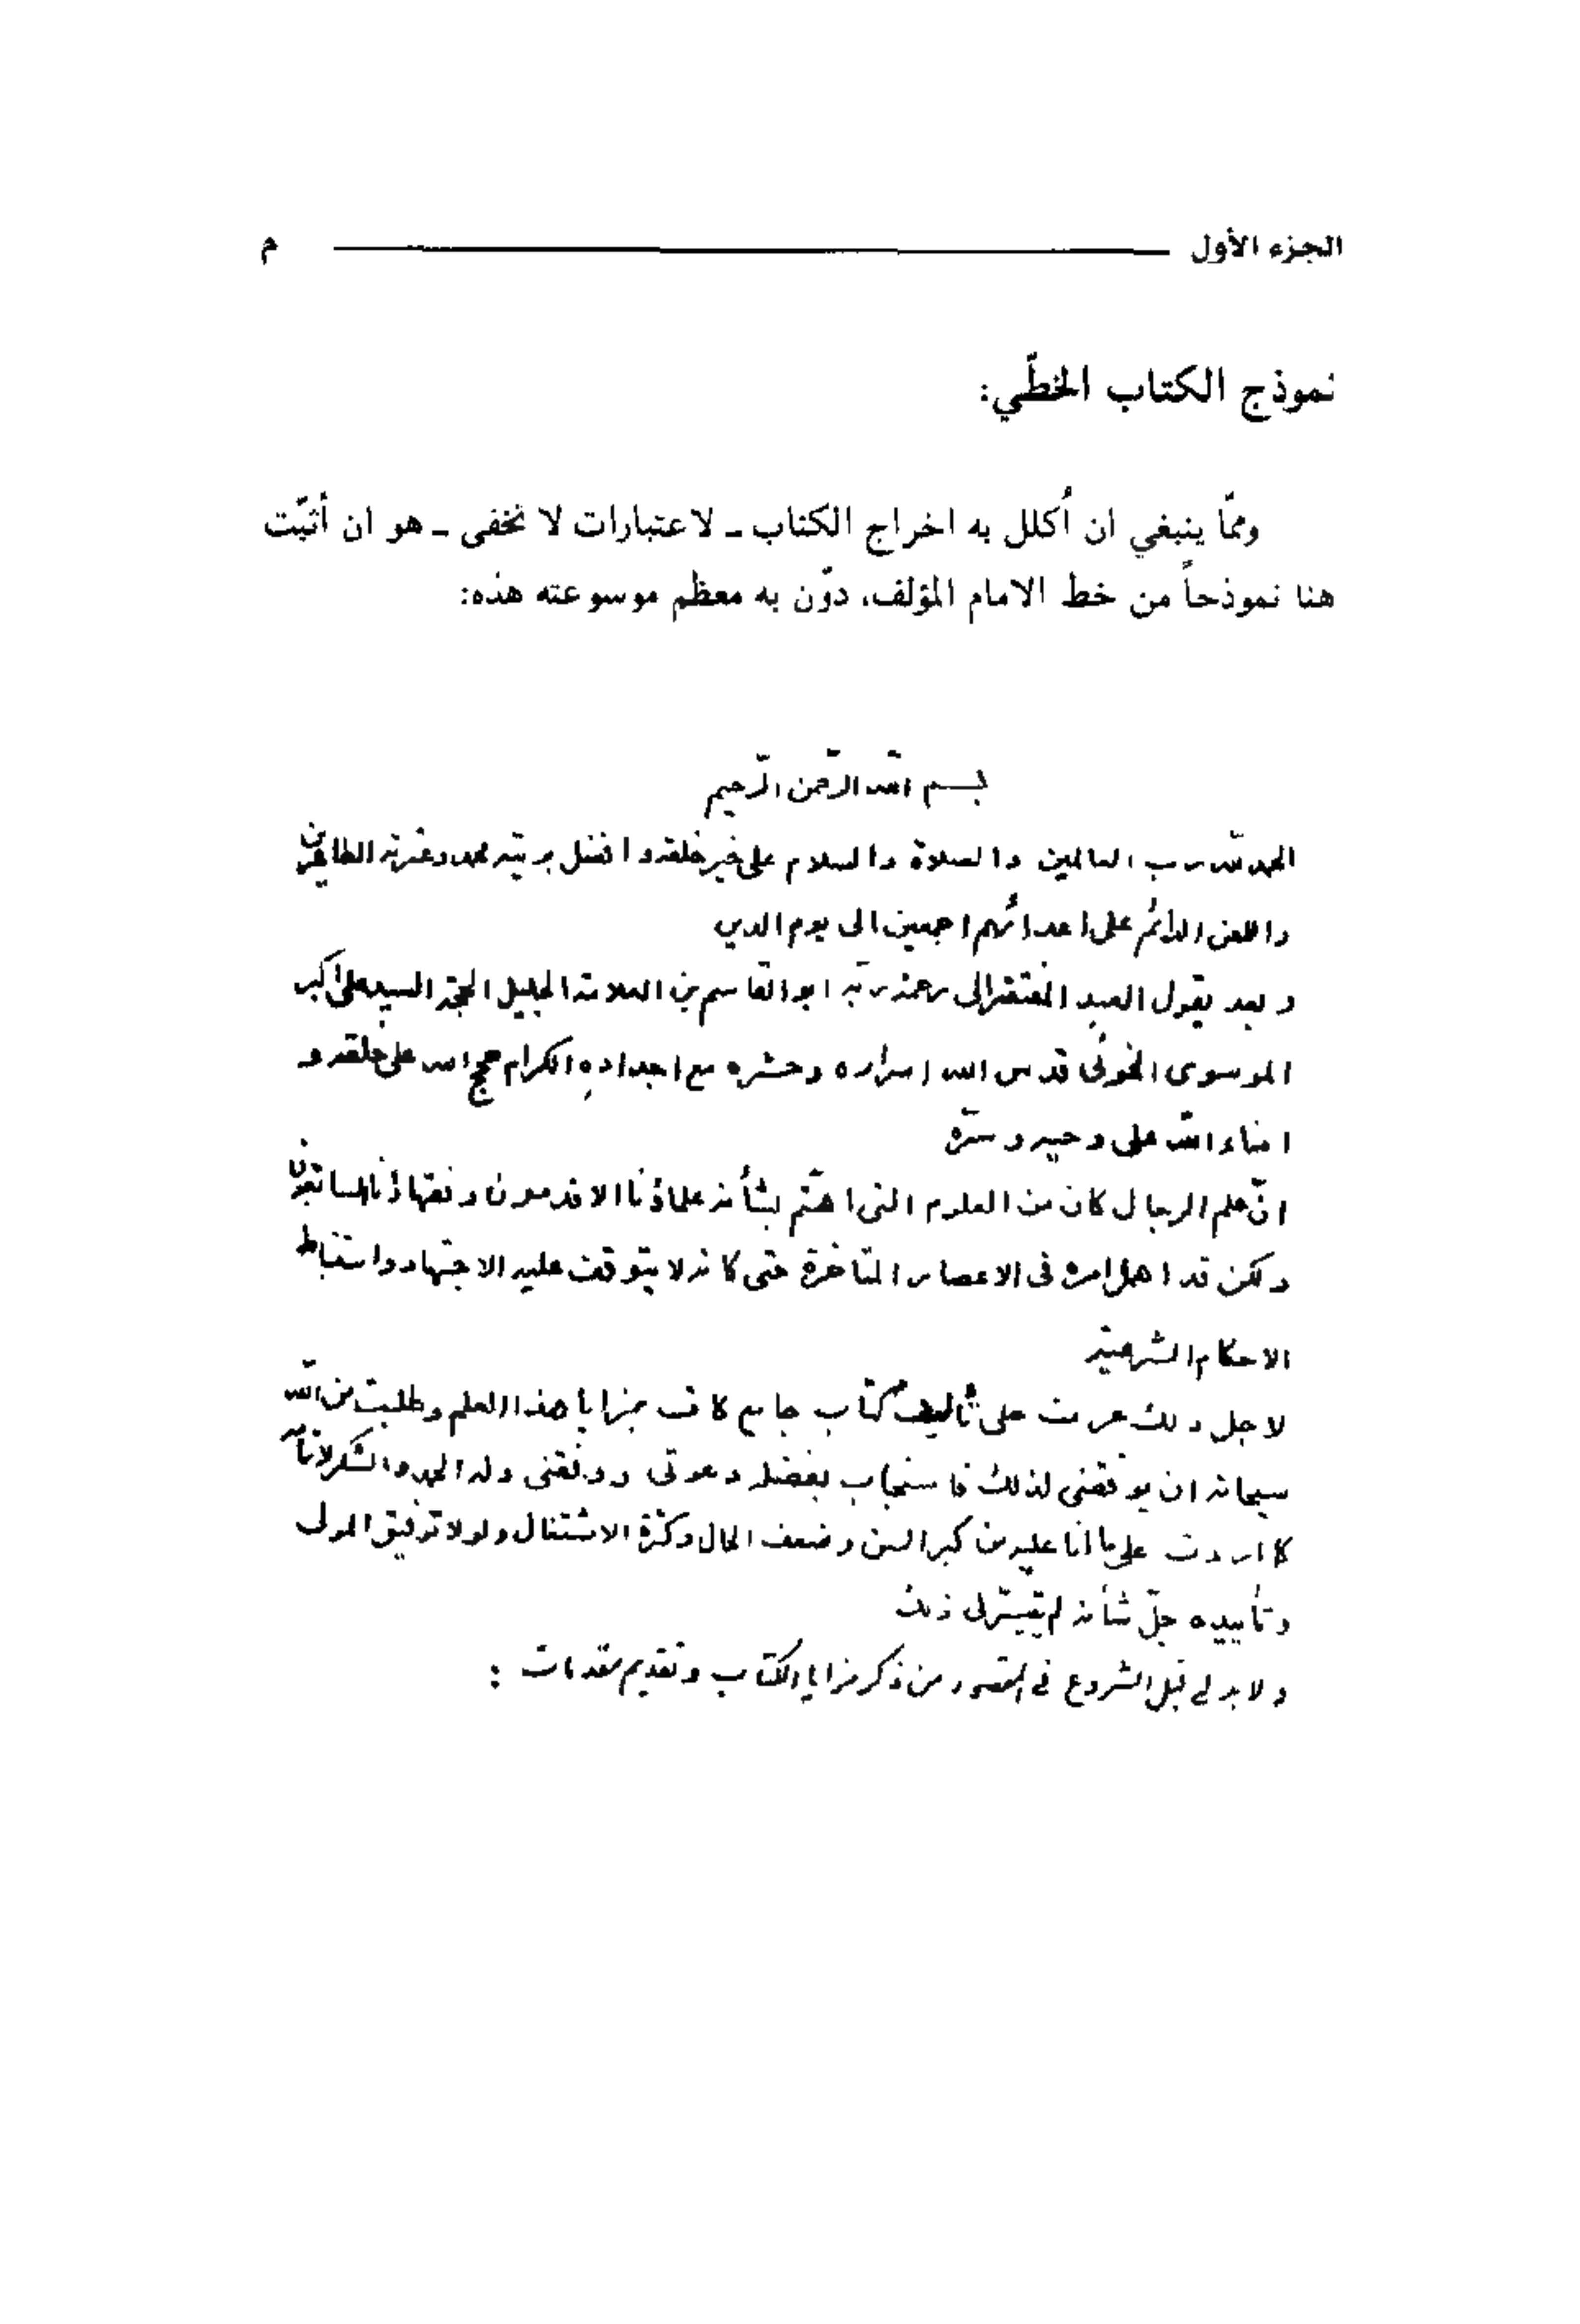 الجزء الأول م
نموذج الكتاب الخطّي:
وممّا ينبغي ان أُكلل به اخراج الكتاب ـ لاعتبارات لا تخفى ـ هو ان أثبّت
هنا نموذجاً من خط الامام المؤلف، دوّن به معظم موسوعته هذه:
بسم الله الرّحمن الرّحيم
الحمد لله رب العالمين والصلاة والسلام على خير خلقه وافضل بريته محمد وعترته الطاهرين
واللعن الدائم على اعدائهم اجمعين الى يوم الدين
وبعد يقول العبد المفتقر الى رحمة ربّه ابو القاسم بن العلامة الجليل الحجة السيد على اكبر
الموسوى الخوئى قدس الله اسراره وحشره مع اجداده الكرام حجج الله على خلقه و
امناء الله على وحيه وسرّه
انّ علم الرجال كان من العلوم التى اهتّم بشأنه علماؤنا الاقدمون وفقهاؤنا السابقون
ولكن قد اهمل امره فى الاعصار المتأخرة حتى كانه لا يتوقف عليه الاجتهاد واستنباط
الاحكام الشرعية
لاجل ذلك عزمت على تأليف كتاب جامع كاف بمزايا هذا العلم وطلبت من الله
سبحانه ان يوفقنى لذلك فاستجاب بفضله دعوتى ووفقنى وله الحمد والشكر لاتمامه
كما اردت على ما انا عليه من كبر السن وضعف الحال وكثرة الاشتغال ولولا توفيق المولى
وتأييده جلّ شأنه لم يتيسّر لى ذلك
ولابد لي قبل الشروع في المقصور من ذكر مزايا الكتاب وتقديم مقدمات :